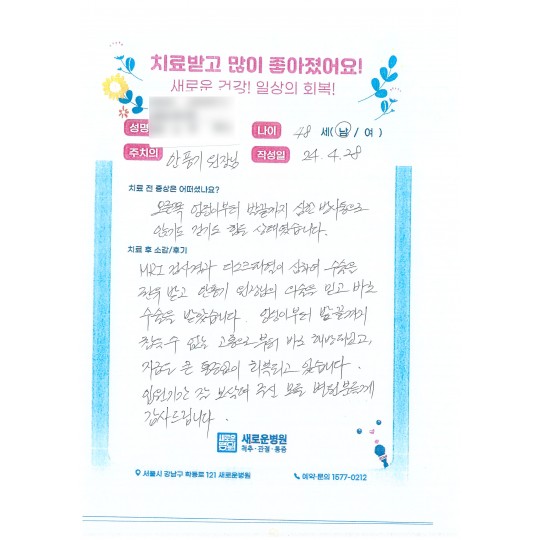 치료받고 많이 좋아졌어요!
새로운 건강! 일상의 회복!
성명 나이 48 세(남/여)
주치의 안풍기 원장님 작성일 24.4.28
치료 전 증상은 어떠셨나요?
오른쪽 엉덩이부터 발끝까지 심한 방사통으로
앉기도 걷기도 힘든 상태였습니다.
치료 후 소감/후기
MRI 검사결과 디스크파열이 심하여 수술을
권유 받고 안풍기 원장님의 의술을 믿고 바로
수술을 받았습니다. 엉덩이부터 발끝까지
참을 수 없는 고통으로부터 바로 해방되었고,
지금도 큰 통증없이 회복되고 있습니다.
입원기간 잘 보살펴 주신 모든 병원분들께
감사드립니다.
새로운병원
새로운병원
척추·관절·통증
서울시 강남구 학동로 121 새로운병원 예약·문의 1577-0212